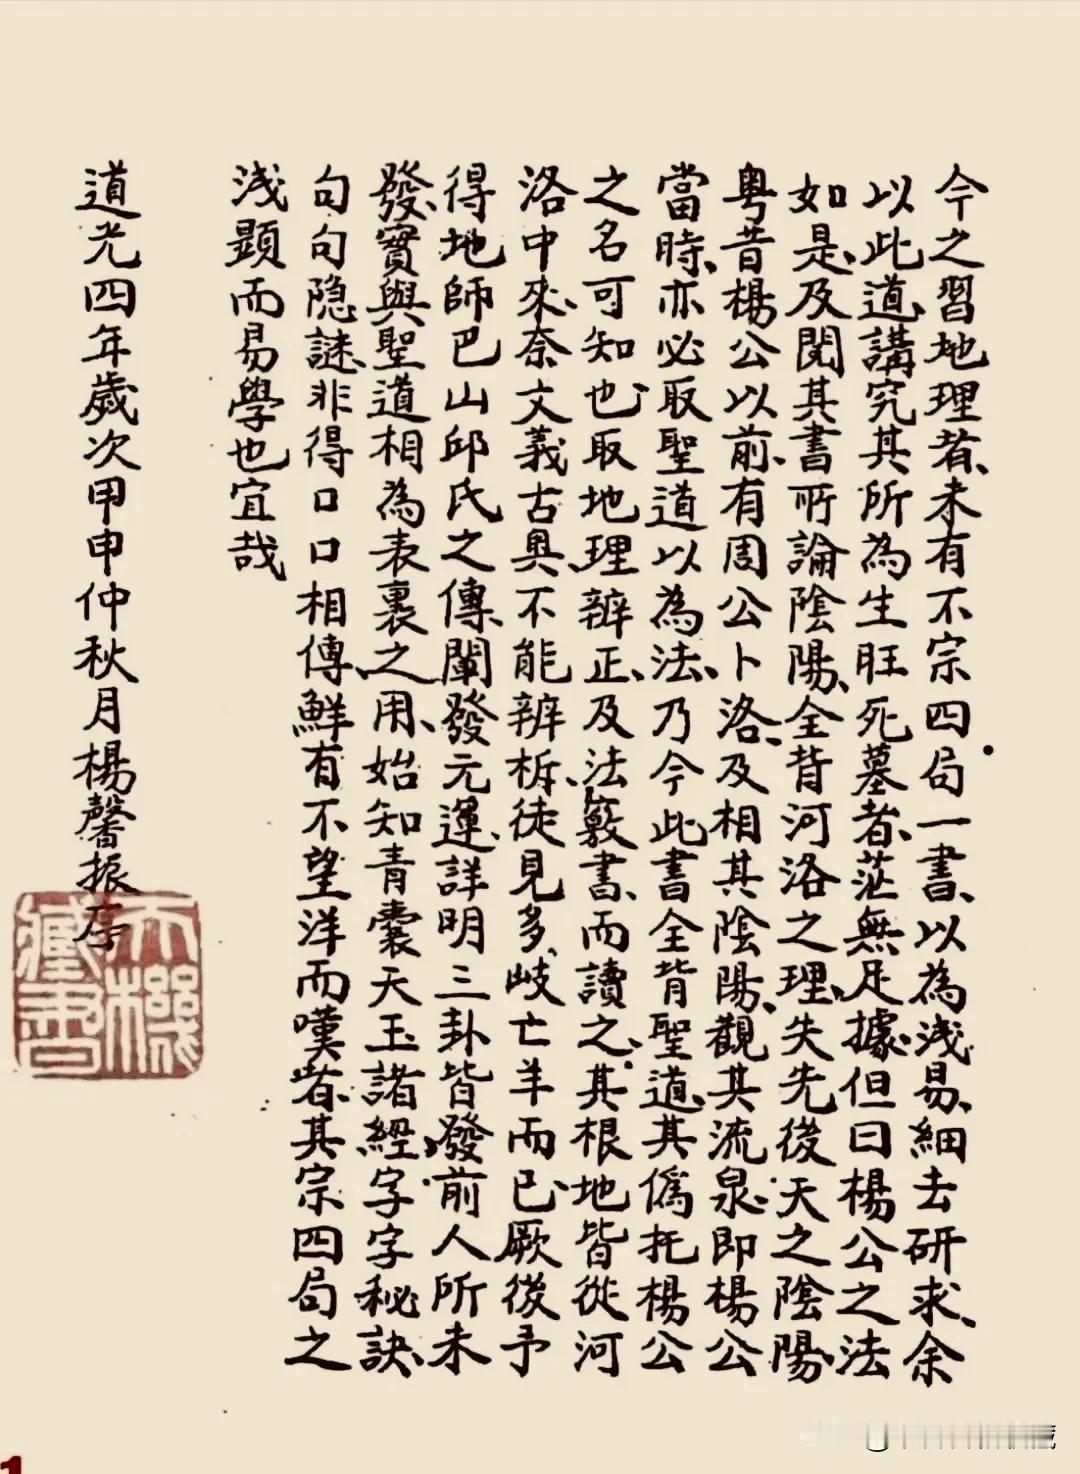 今之習地理者未有不宗四局一書以為浅易細去研求余
以此道講究其所為生旺死墓者茫無足據但曰楊公之法
如是及閱其書所論陰陽全背河洛之理失先後天之陰陽
粵昔楊公以前有周公卜洛及相其陰陽觀其流泉即楊公
當時亦必取聖道以為法乃今此書全背聖道其偽托楊公
之名可知也取地理辨正及法竅書而讀之其根地皆從河
洛中來奈文義古奧不能辨析徒見多岐亡羊而已厥後予
得地師巴山邱氏之傳闡發元運詳明三卦皆發前人所未
發實與聖道相為表裏之用始知青囊天玉諸經字字秘訣
句句隐謎非得口口相傳鮮有不望洋而嘆者其宗四局之
浅顕而易學也宜哉
道光四年歲次甲申仲秋月楊馨振序
天機
藏書
1